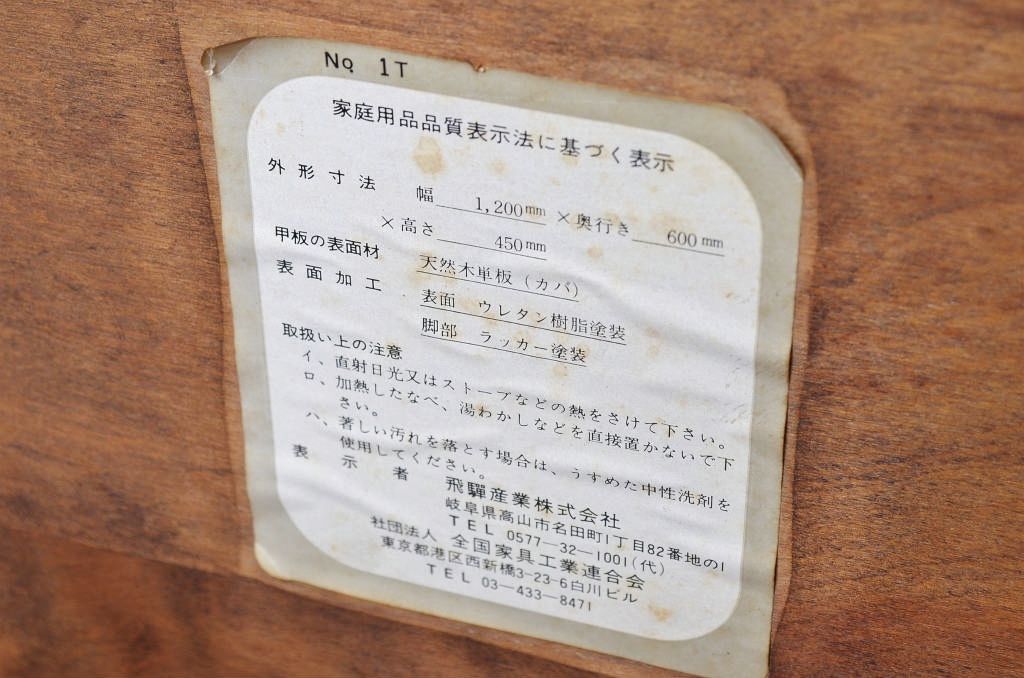 No. 1T
家庭用品品質表示法に基づく表示
外形寸法 幅 1,200mm ×奥行き 600mm
×高さ 450mm
甲板の表面材 天然木単板（カバ）
表面加工 表面 ウレタン樹脂塗装
脚部 ラッカー塗装
取扱い上の注意
イ、直射日光又はストーブなどの熱をさけて下さい。
ロ、加熱したなべ、湯わかしなどを直接置かないで下
さい。
ハ、著しい汚れを落とす場合は、うすめた中性洗剤を
使用してください。
表示者 飛驒産業株式会社
岐阜県高山市名田町1丁目82番地の1
TEL 0577-32-1001(代)
社団法人 全国家具工業連合会
東京都港区西新橋3-23-6白川ビル
TEL 03-433-8471